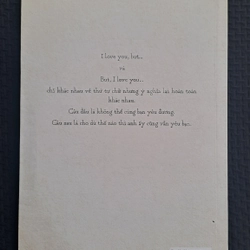 I love you, but...
và
But, I love you...
chỉ khác nhau về thứ tự chữ nhưng ý nghĩa lại hoàn toàn
khác nhau.
Câu đầu là không thể cùng bạn yêu đương.
Câu sau là cho dù thế nào thì anh ấy cũng vẫn yêu bạn.